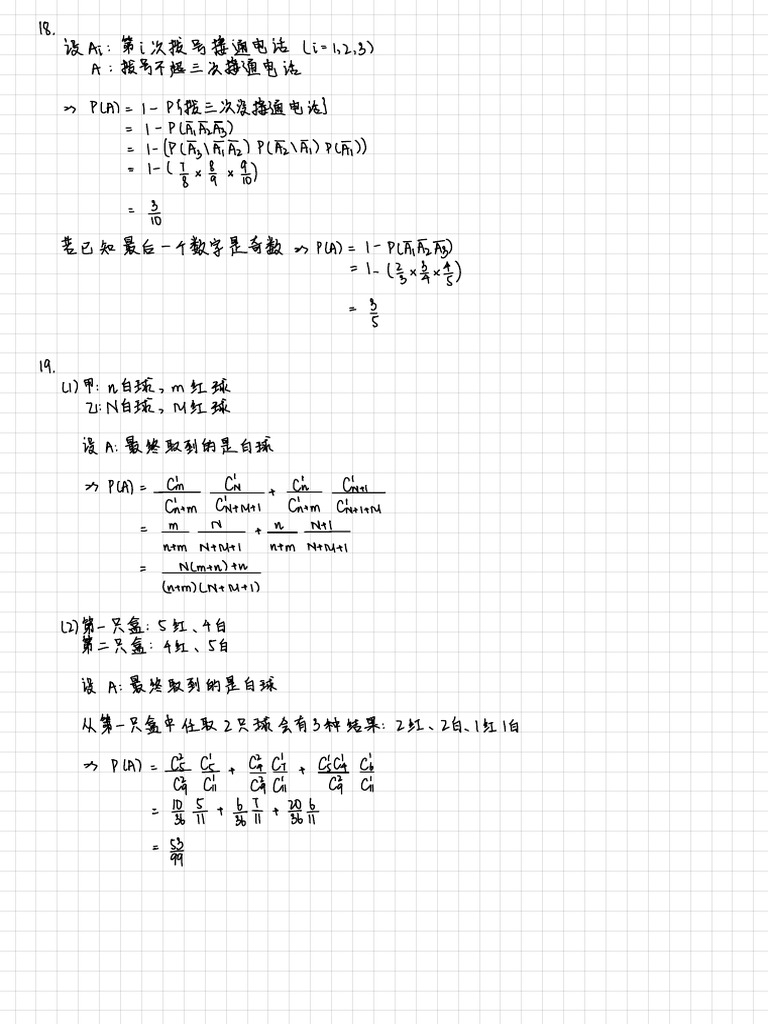 18.
设 Ai: 第 i 次拨号接通电话 (i=1,2,3)
A: 拨号不超三次接通电话
⇒ P(A) = 1 - P{拨三次没接通电话}
= 1 - P(A̅₁A̅₂A̅₃)
= 1 - (P(A̅₃\A̅₁A̅₂) P(A̅₂\A̅₁) P(A̅₁))
= 1 - (7/8 × 8/9 × 9/10)
= 3/10
若已知最后一个数字是奇数 ⇒ P(A) = 1 - P(A̅₁A̅₂A̅₃)
= 1 - (2/3 × 3/4 × 4/5)
= 3/5
19.
(1) 甲: n白球, m红球
乙: N白球, M红球
设 A: 最终取到的是白球
⇒ P(A) = C¹m/C¹n+m C¹N/C¹N+M+1 + C¹n/C¹n+m C¹N+1/C¹N+1+M
= m/n+m N/N+M+1 + n/n+m N+1/N+M+1
= N(m+n)+n/(n+m)(N+M+1)
(2) 第一只盒: 5红、4白
第二只盒: 4红、5白
设 A: 最终取到的是白球
从第一只盒中任取2只球会有3种结果: 2红、2白、1红1白
⇒ P(A) = C²5/C²9 C¹5/C¹11 + C²4/C²9 C¹7/C¹11 + C¹5C¹4/C²9 C¹6/C¹11
= 10/36 5/11 + 6/36 7/11 + 20/36 6/11
= 53/99